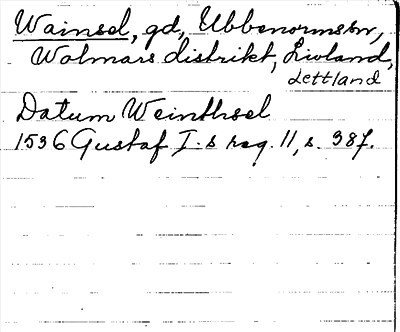 Wainsel, gd, Ubbenormsbn,
Wolmars distrikt, Livland,
Lettland
Datum Weinthsel
1536 Gustaf I:s reg. 11, s. 387.